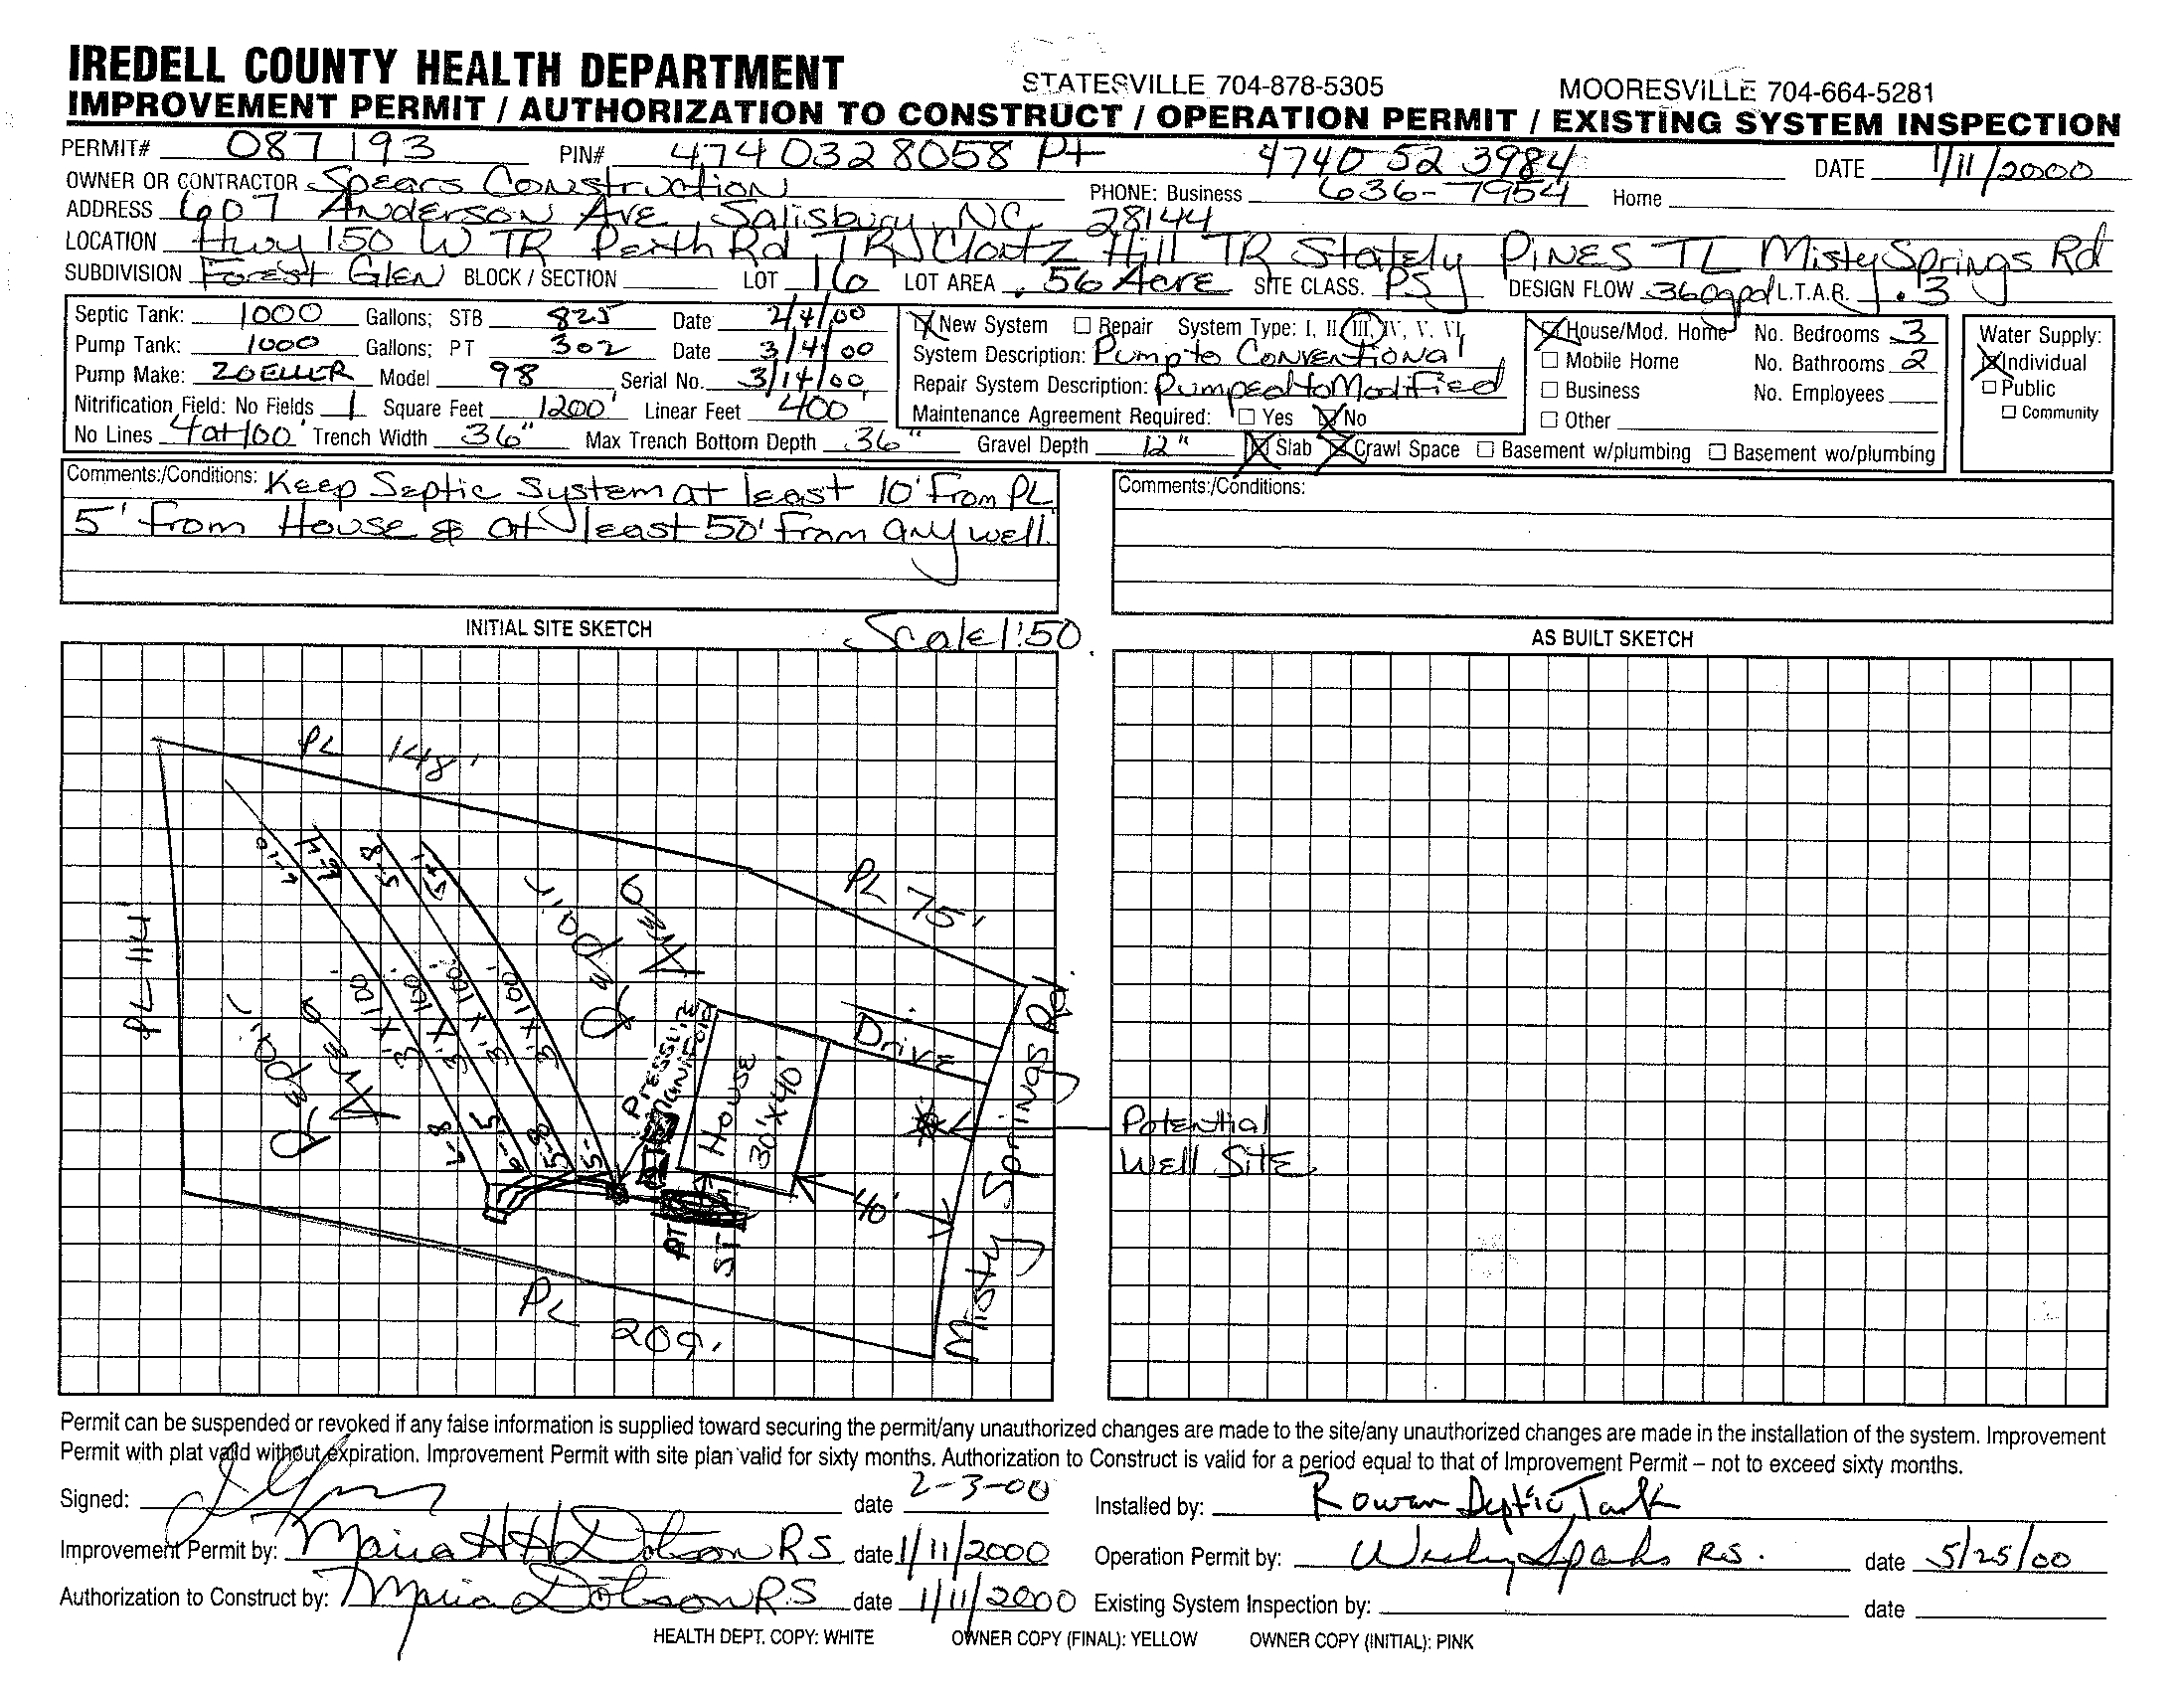 IREDELL COUNTY HEALTH DEPARTMENT STATESVILLE 704-878-5305 MOORESVILLE 704-664-5281
IMPROVEMENT PERMIT / AUTHORIZATION TO CONSTRUCT / OPERATION PERMIT / EXISTING SYSTEM INSPECTION
PERMIT# 087193 PIN# 4740328058 Pt 4740 52 3984 DATE 1/11/2000
OWNER OR CONTRACTOR Spears Construction PHONE: Business 636-7954 Home
ADDRESS 607 Anderson Ave, Salisbury, NC 28144
LOCATION Hwy 150 W TR Perth Rd, TR Clontz Hill TR Stately Pines TL Misty Springs Rd
SUBDIVISION Forest Glen BLOCK / SECTION LOT 16 LOT AREA .56 Acre SITE CLASS. PS DESIGN FLOW 360gpd L.T.A.R. .3
Septic Tank: 1000 Gallons; STB 825 Date 2/4/00
Pump Tank: 1000 Gallons; PT 302 Date 3/4/00
Pump Make: ZOELLER Model 98 Serial No. 3/14/00
Nitrification Field: No Fields 1 Square Feet 1200' Linear Feet 400'
No Lines 4 at 100' Trench Width 36" Max Trench Bottom Depth 36" Gravel Depth 12" Slab Crawl Space Basement w/plumbing Basement wo/plumbing
New System Repair System Type: I, II, III, IV, V, VI,
System Description: Pump to Conventional
Repair System Description: Pumped to Modified
Maintenance Agreement Required: Yes No
House/Mod. Home No. Bedrooms 3
Mobile Home No. Bathrooms 2
Business No. Employees
Other
Water Supply:
Individual
Public
Community
Comments:/Conditions: Keep Septic System at least 10' from PL
5' from House & at least 50' from any well.
Comments:/Conditions:
INITIAL SITE SKETCH Scale 1:50
AS BUILT SKETCH
PL 148'
PL 75'
PL 114'
Repair Area
Repair Area
3' X 100'
3' X 100'
3' X 100'
3' X 100'
PRESSURE MANIFOLD
House 30'X40'
Drive
Misty Springs Rd.
Potential
Well Site
40'
PT
ST
PL 209'
Permit can be suspended or revoked if any false information is supplied toward securing the permit/any unauthorized changes are made to the site/any unauthorized changes are made in the installation of the system. Improvement
Permit with plat valid without expiration. Improvement Permit with site plan valid for sixty months. Authorization to Construct is valid for a period equal to that of Improvement Permit – not to exceed sixty months.
Signed: date 2-3-00 Installed by: Rowan Septic Tank
Improvement Permit by: Maria H H Dotson RS date 1/11/2000 Operation Permit by: Wesley Sparks R.S. date 5/25/00
Authorization to Construct by: Maria Dotson R.S date 1/11/2000 Existing System Inspection by: date
HEALTH DEPT. COPY: WHITE OWNER COPY (FINAL): YELLOW OWNER COPY (INITIAL): PINK